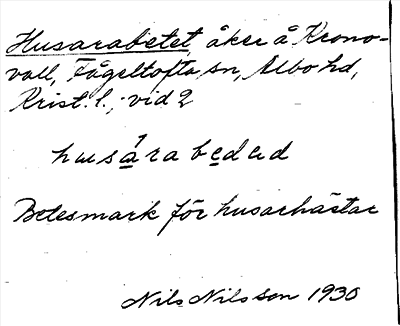 Husarabetet, åker å Krono-
vall, Fågeltofta sn, Albo hd,
Krist. l., vid 2
husárabedəd
Betesmark för husarhästar
Nils Nilsson 1930